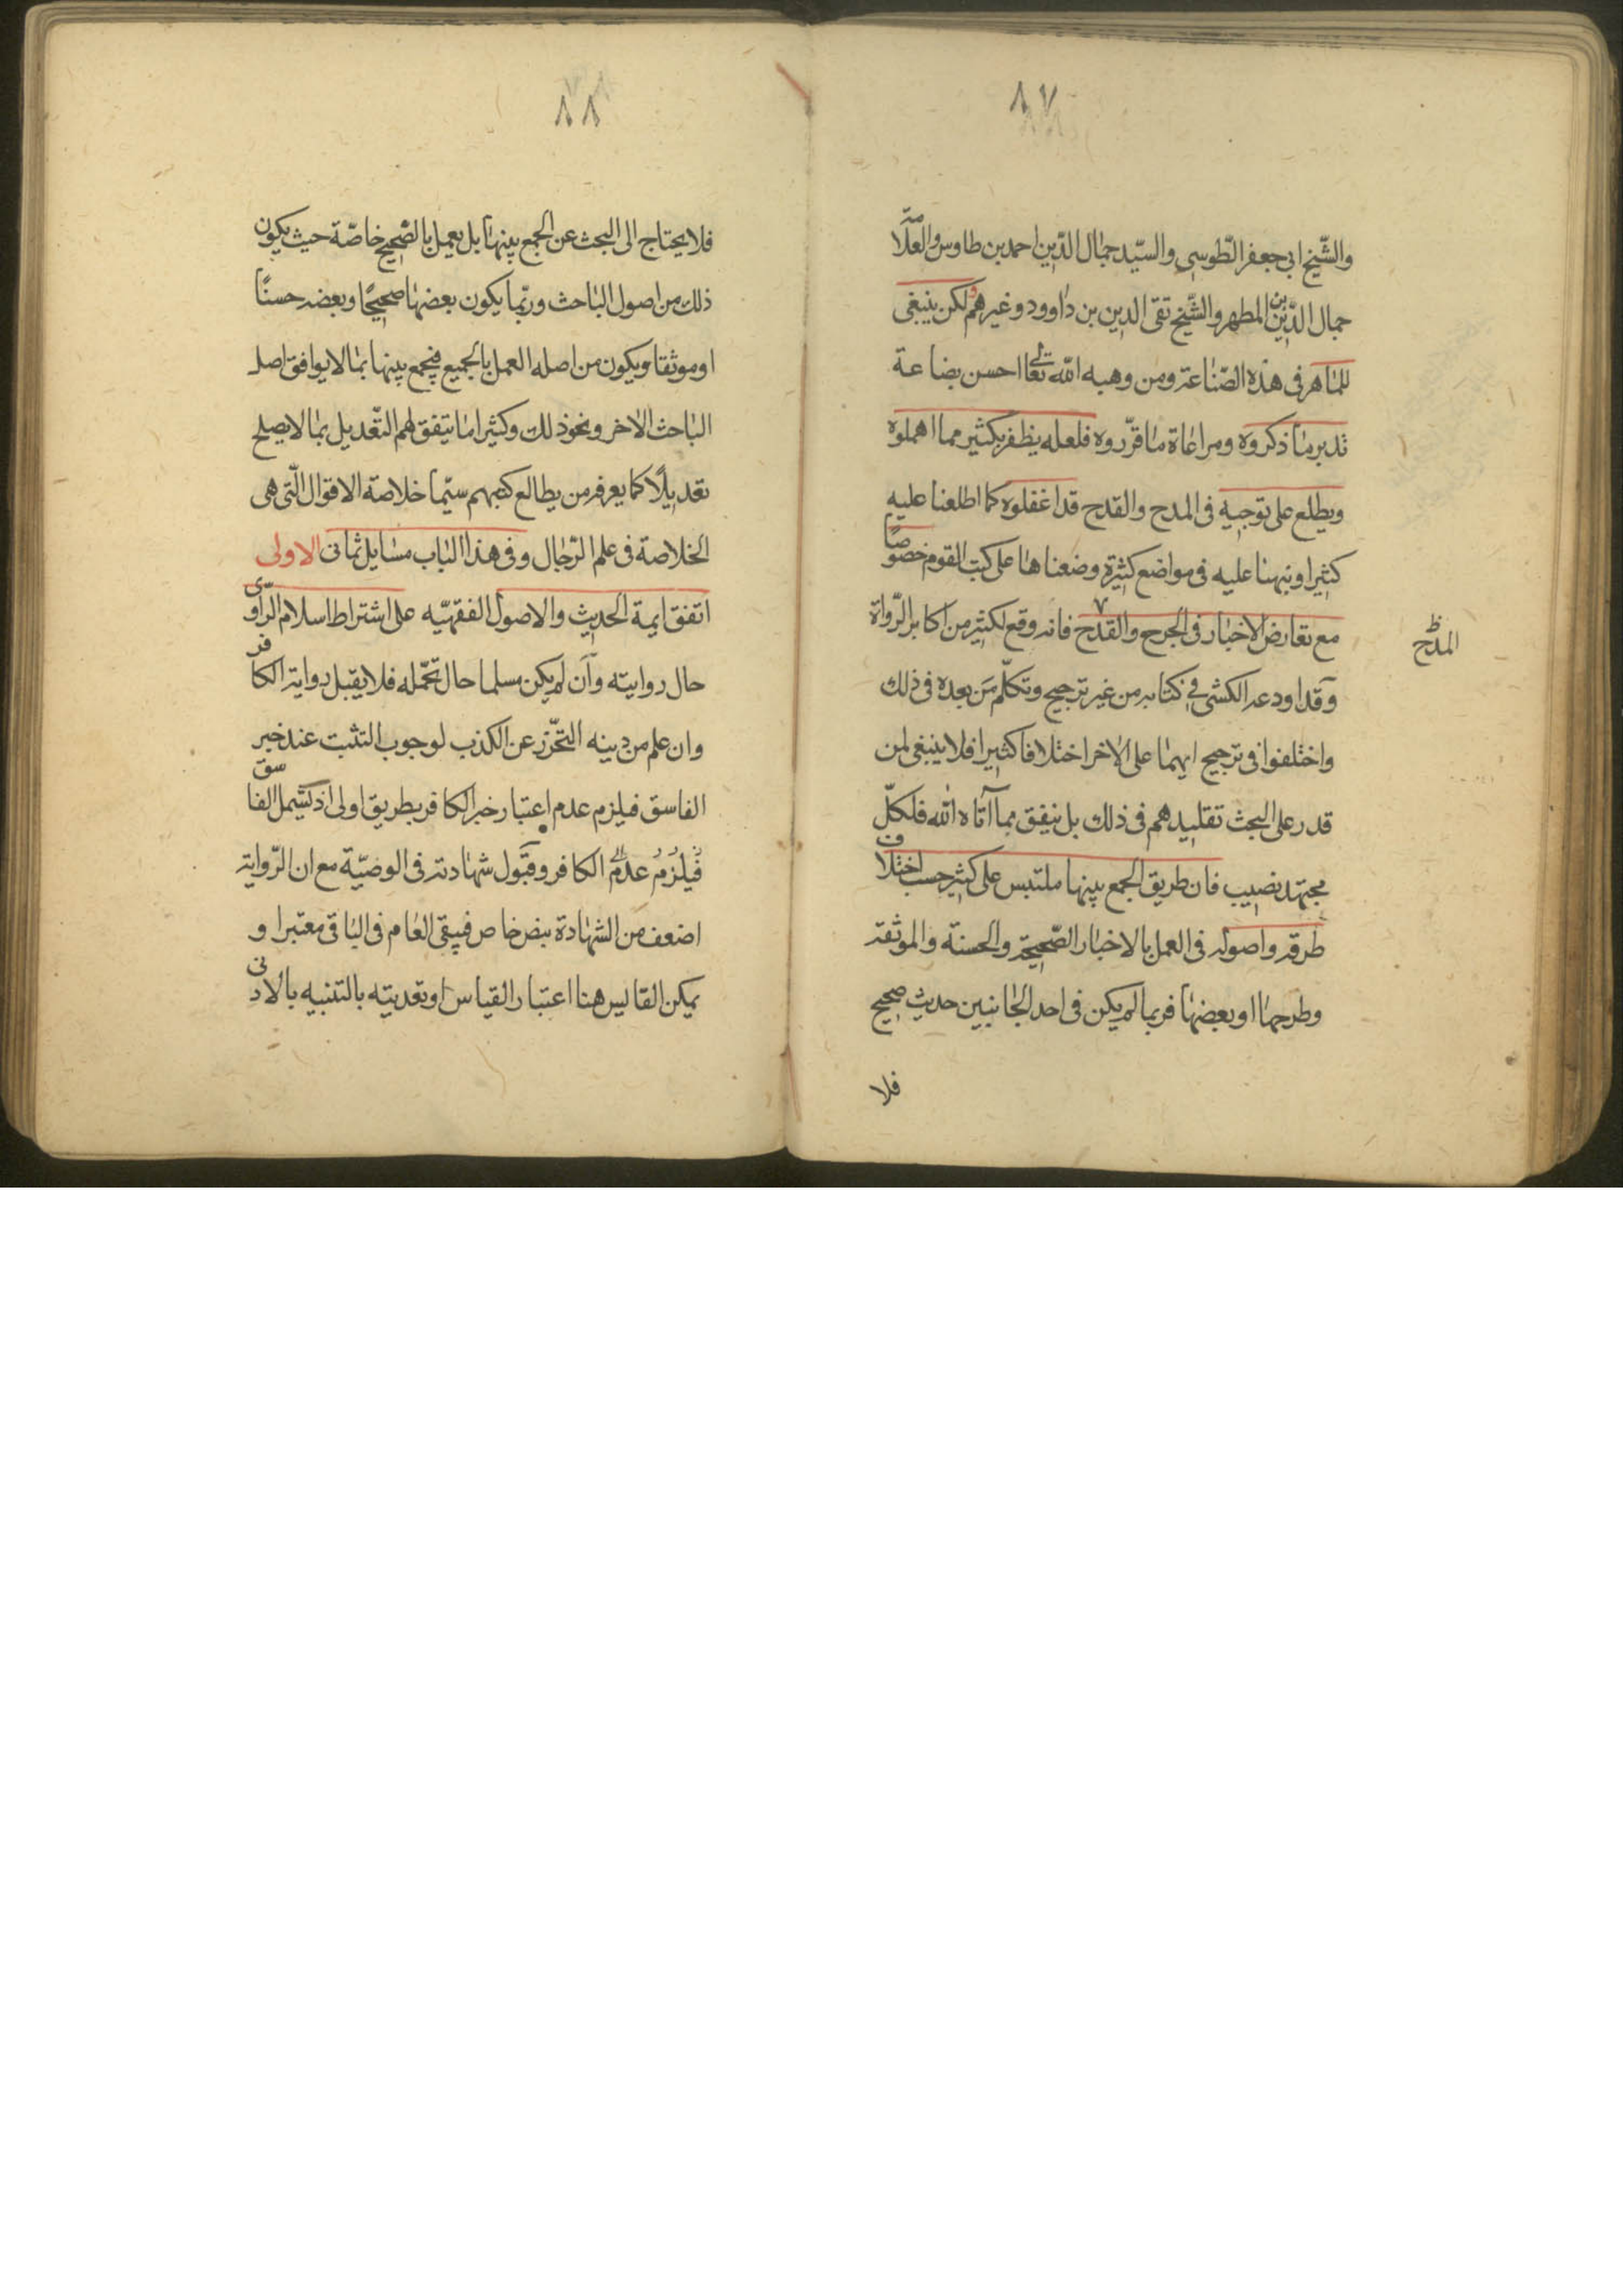 ٨٧
والشّيخ ابى جعفر الطّوسى والسّيد جمال الدّين احمد بن طاوس والعلّامة
جمال الدّين بن المطهر والشّيخ تقى الدين بن داوود وغيرهم ولكن ينبغى
للماهر فى هذه الصّناعة ومن وهبه الله تعالى احسن بضاعة
تدبر ما ذكروه ومراعاة ما قرّروه فلعله يظفر بكثير مما اهملوه
ويطلع على توجيه فى المدح والقدح قد اغفلوه كما اطلعنا عليه
كثيرا ونبهنا عليه فى مواضع كثيرة وضعناها على كتب القوم خصوصًا
مع تعارض الاخبار فى الجرح والقدح فانه وقع لكثير من اكابر الرّواة
المدح ظ
وقد اودعه الكشى فى كتابه من غير ترجيح وتكلّم مَن بعده فى ذلك
واختلفوا فى ترجيح ايهما على الاخر اختلافا كثيرا فلا ينبغى لمن
قدر على البحث تقليدهم فى ذلك بل ينفق مما آتاه الله فلكلّ
مجتهد نصيب فان طريق الجمع بينها ملتبس على كثير حسب اختلاف
طرقه واصوله فى العمل بالاخبار الصّحيحة والحسنة والموثقة
وطرحها او بعضها فربما لم يكن فى احد الجانبين حديث صحيح
فلا
٨٨
فلا يحتاج الى البحث عن الجمع بينها بل يعمل بالصّحيح خاصّة حيث يكون
ذلك من اصول الباحث وربّما يكون بعضها صحيحًا وبعضه حسنًا
او موثقا ويكون من اصله العمل بالجميع فيجمع بينها بما لا يوافق اصل
الباحث الاخر ونحو ذلك وكثيرا ما يتفق لهم التّعديل بما لا يصلح
تعديلًا كما يعرفه من يطالع كتبهم سيّما خلاصة الاقوال الّتى هى
الخلاصة فى علم الرّجال وفى هذا الباب مسايل ثمانى الاولى
اتفق ايمة الحديث والاصول الفقهيّه على اشتراط اسلام الرّاوى
حال روايته وان لم يكن مسلما حال تحمّله فلا يقبل رواية الكافر
وان علم من دينه التحّرز عن الكذب لوجوب التثبت عند خبر
الفاسق فيلزم عدم اعتبار خبر الكافر بطريق اولى اذ يشمل الفاسق
فيلزم عدم الكافر وقبول شهادته فى الوصيّة مع ان الرّواية
اضعف من الشهادة بنص خاص فيبقى العام فى الباقى معتبرا و
يمكن القايس هنا اعتبار القياس او تعديته بالتنبيه بالادنى